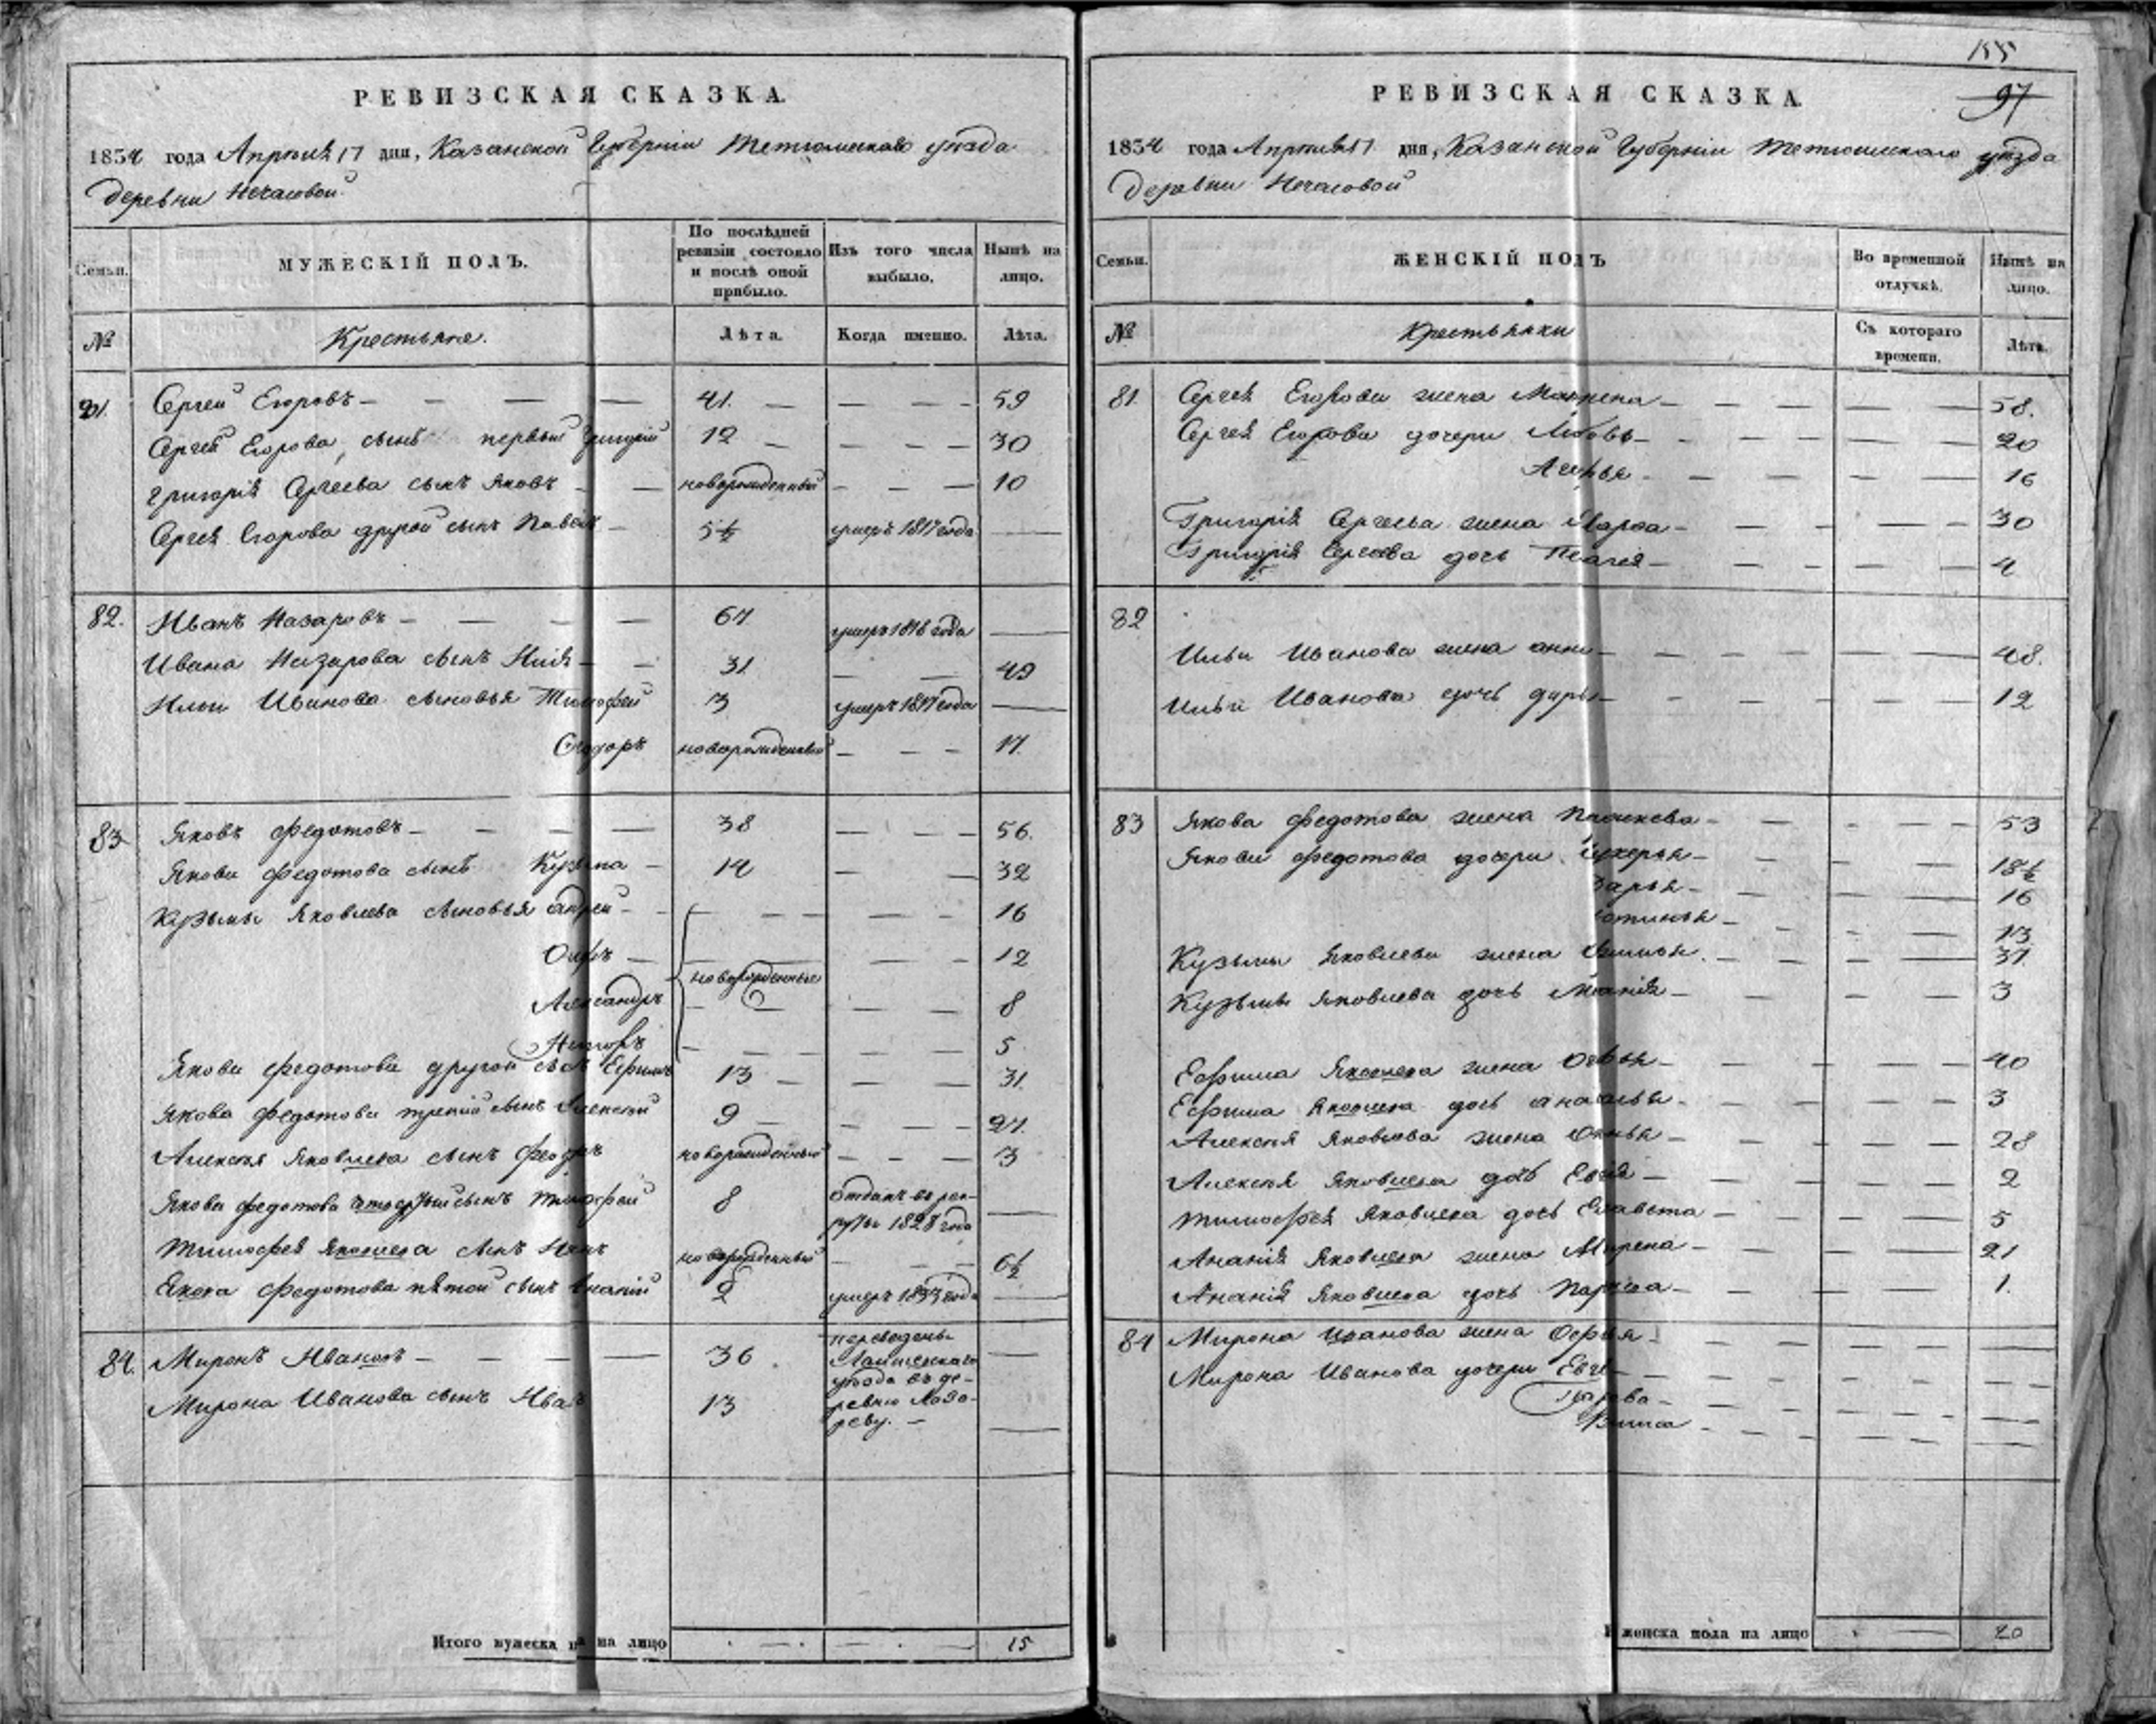 РЕВИЗСКАЯ СКАЗКА.
1834 года Апрѣля 17 дня, Казанской Губерніи Тетюшскаго уѣзда
деревни Нечасовой
Семьи. МУЖЕСКІЙ ПОЛЪ. По послѣдней ревизіи состояло и послѣ оной прибыло. Изъ того числа выбыло. Нынѣ на лицо.
№ Крестьяне. Лѣта. Когда именно. Лѣта.
81. Сергей Егоровъ — 41. — 59
Сергея Егорова сынъ первый Григорій 12 — 30
Григорія Сергеева сынъ Яковъ — новорожденный — 10
Сергея Егорова другой сынъ Павелъ — 5½ умеръ 1817 года —
82. Иванъ Назаровъ — 67 умеръ 1816 года —
Ивана Назарова сынъ Илія — 31. — 49
Ильи Иванова сыновья Тимофей 3 умеръ 1817 года —
Сидоръ новорожденный — 17.
83 Яковъ Федотовъ — 38 — 56.
Якова Федотова сынъ Кузьма — 14 — 32
Кузьмы Яковлева сыновья Андрей — 16
— 12
новорожденные
Александръ — 8
— 5
Якова Федотова другой сынъ Ефимъ 13 — 31.
Якова Федотова третій сынъ Алексей 9 — 27.
Алексея Яковлева сынъ Федоръ новорожденный — 3
Якова Федотова четвертый сынъ Тимофей 8 отданъ въ рек-
руты 1828 года —
Тимофея Яковлева сынъ новорожденный — 6½
Якова Федотова пятой сынъ Ананій 2 умеръ 1833 года —
84. Миронъ Ивановъ — 36 переведены
Лаишевскаго
Мирона Иванова сынъ Иванъ 13 уѣзда въ де-
ревню
Итого мужеска на лицо — 15
155
97
РЕВИЗСКАЯ СКАЗКА.
1834 года Апрѣля 17 дня, Казанской Губерніи Тетюшскаго уѣзда
деревни Нечасовой
Семьи. ЖЕНСКІЙ ПОЛЪ Во временной отлучкѣ. Нынѣ на лицо.
№ Крестьянки Съ котораго времени. Лѣта.
81. Сергея Егорова жена — 58.
Сергея Егорова дочери Любовь — 20
— 16
Григорія Сергеева жена Марфа — 30
Григорія Сергеева дочь — 4
82
Ильи Иванова жена Анна — 48.
Ильи Иванова дочь Дарья — 12
83 Якова Федотова жена Прасковья — 53
Якова Федотова дочери — 18½
Дарья — 16
— 13
Кузьмы Яковлева жена — 37.
Кузьмы Яковлева дочь — 3
Ефима Яковлева жена — 40
Ефима Яковлева дочь — 3
Алексея Яковлева жена — 28
Алексея Яковлева дочь — 2
Тимофея Яковлева дочь — 5
Ананія Яковлева жена — 21
Ананія Яковлева дочь — 1.
84 Мирона Иванова жена —
Мирона Иванова дочери —
женска пола на лицо — 20